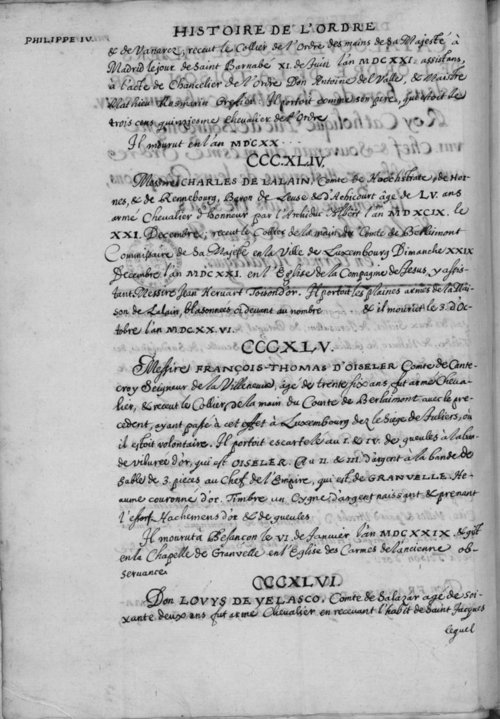 HISTOIRE DE L'ORDRE
PHILIPPE IV.
& de Vanarez, receut le Collier de l'Ordre des mains de Sa Majesté à
Madrid le jour de Saint Barnabé XI. de Juin l'an MDCXXI. assistans,
à l'acte de Chancelier de l'Ordre Don Antoine del Valle, & Maistre
Mathieu Greffier. Il portoit comme son pere, qui étoit le
trois cens quinziesme Chevalier de l'Ordre
Il mourut en l'an MDCXX....
CCC.XL.IV.
Messire CHARLES DE LALAIN, Comte de Hoochstrate, de Hor-
nes, & de Rennebourg, Baron de Leuse & d'Achicourt âge de LV. ans
armé Chevalier d'honneur par l'Archiduc Albert l'an MDXCIX. le
XXI. Decembre; receut le Collier de la main du Comte de Berlaimont
Commissaire de Sa Majesté en la Ville de Luxembourg Dimanche XXIX
Decembre l'an MDCXXI. en l'Eglise de la Compagne de Jesus, y assis-
tant Messire Jean Hervart Toison d'or. Il portoit les plaines armes de la Mai-
son de Lalain, blasonnées ci devant au nombre & il mourut le 3. d'Oc-
tobre l'an MDCXX.VI.
CCC.XL.V.
Messire FRANÇOIS-THOMAS D'OISELER Comte de Cante-
croy Seigneur de la Villeneuve, âge de trente six ans, fut armé Cheva-
lier, & receut le Collier de la main du Comte de Berlaimont avec le pre-
cedent, ayant passé à cet effet à Luxembourg dez le Siege de Juliers, où
il estoit volontaire. Il portoit escartelé au I. & IV. de gueules à la ban-
de vivrée d'or, qui est OISELER. Au II. & III. d'argent à la bande de
Sable de 3. pieces au Chef de l'Empire, qui est de GRANVELLE. He-
aume couronne d'or. Timbre un Cygne d'argent naissant & prenant
l'essor Hachemens d'or & de gueules
Il mourut à Besançon le VI. de Janvier l'an MDCXXIX. & gist
en la Chapelle de Granvelle en l'Eglise des Carmes de l'ancienne ob-
servance
CCC.XLVI.
Don LOUYS DE VELASCO, Comte de Salazar age de soi-
xante deux ans, fut armé Chevalier en recevant l'habit de Saint Jacques
lequel